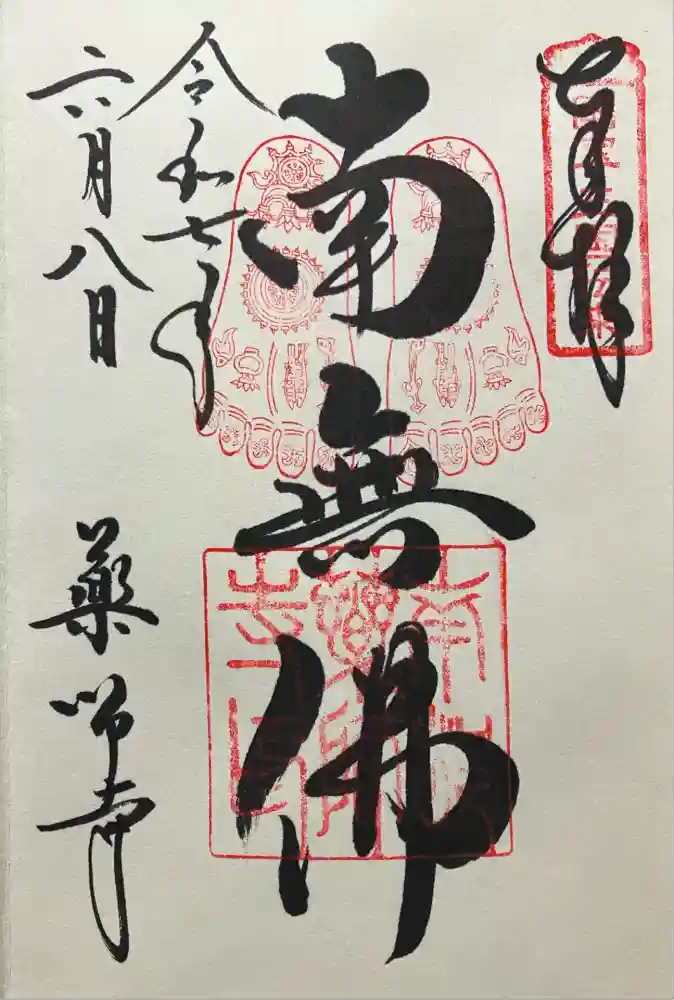 奉拝
南無佛
令和七年
六月八日
薬師寺